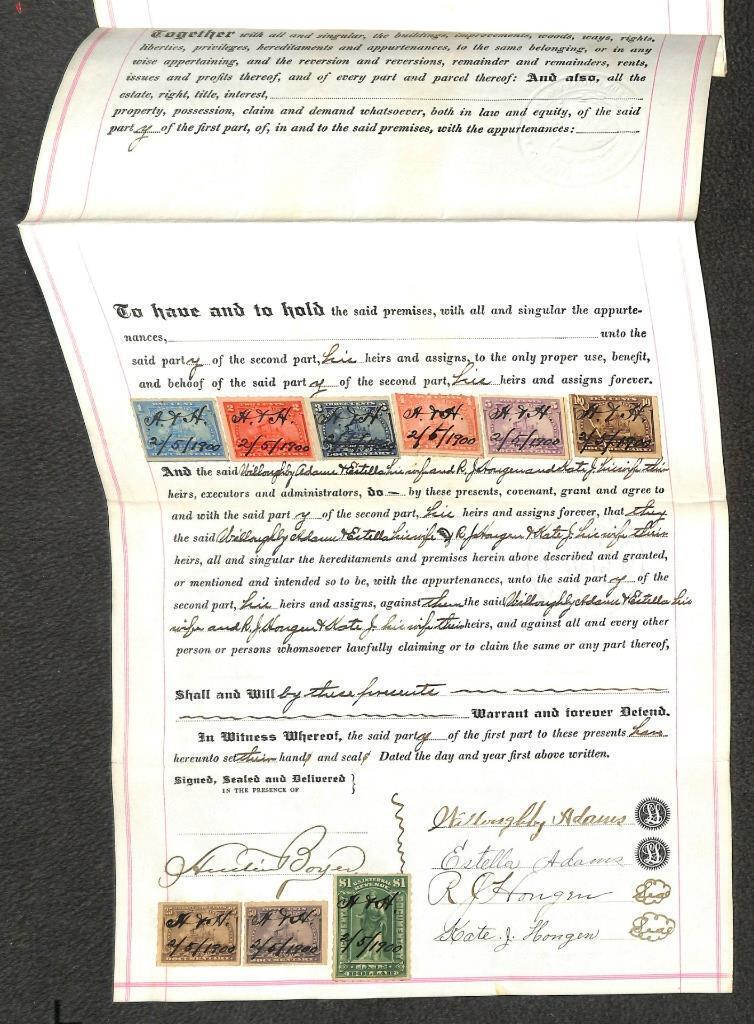 Together with all and singular, the buildings, improvements, woods, ways, rights,
liberties, privileges, hereditaments and appurtenances, to the same belonging, or in any
wise appertaining, and the reversion and reversions, remainder and remainders, rents,
issues and profits thereof, and of every part and parcel thereof: And also, all the
estate, right, title, interest,
property, possession, claim and demand whatsoever, both in law and equity, of the said
party of the first part, of, in and to the said premises, with the appurtenances:
To have and to hold the said premises, with all and singular the appurte-
nances, unto the
said party of the second part, his heirs and assigns, to the only proper use, benefit,
and behoof of the said party of the second part, his heirs and assigns forever.
1 2 3 5 10
A & H. H & H. A & H. A & H. A & H. A & H.
2/5/1900 2/5/1900 2/5/1900 2/5/1900 2/5/1900 2/5/1900
And the said Willoughby Adams & Estella his wife and R. J. Hongen and Kate J. his wife their
heirs, executors and administrators, do — by these presents, covenant, grant and agree to
and with the said party of the second part, his heirs and assigns forever, that they
the said Willoughby Adams & Estella his wife & R J Hongen & Kate J. his wife their
heirs, all and singular the hereditaments and premises herein above described and granted,
or mentioned and intended so to be, with the appurtenances, unto the said party of the
second part, his heirs and assigns, against them the said Willoughby Adams & Estella his
wife and R. J Hongen & Kate J. his wife their heirs, and against all and every other
person or persons whomsoever lawfully claiming or to claim the same or any part thereof,
Shall and Will by these presents
Warrant and forever Defend.
In Witness Whereof, the said party of the first part to these presents have
hereunto set their hands and seals Dated the day and year first above written.
Signed, Sealed and Delivered }
IN THE PRESENCE OF
Willoughby Adams
Estella Adams
Boyer
R J Hongen Seal
Kate J. Hongen Seal
$1 U.S. INTERNAL REVENUE $1
A & H. A & H. A & H
2/5/1900 2/5/1900 2/5/1900
DOCUMENTARY DOCUMENTARY
DOLLAR